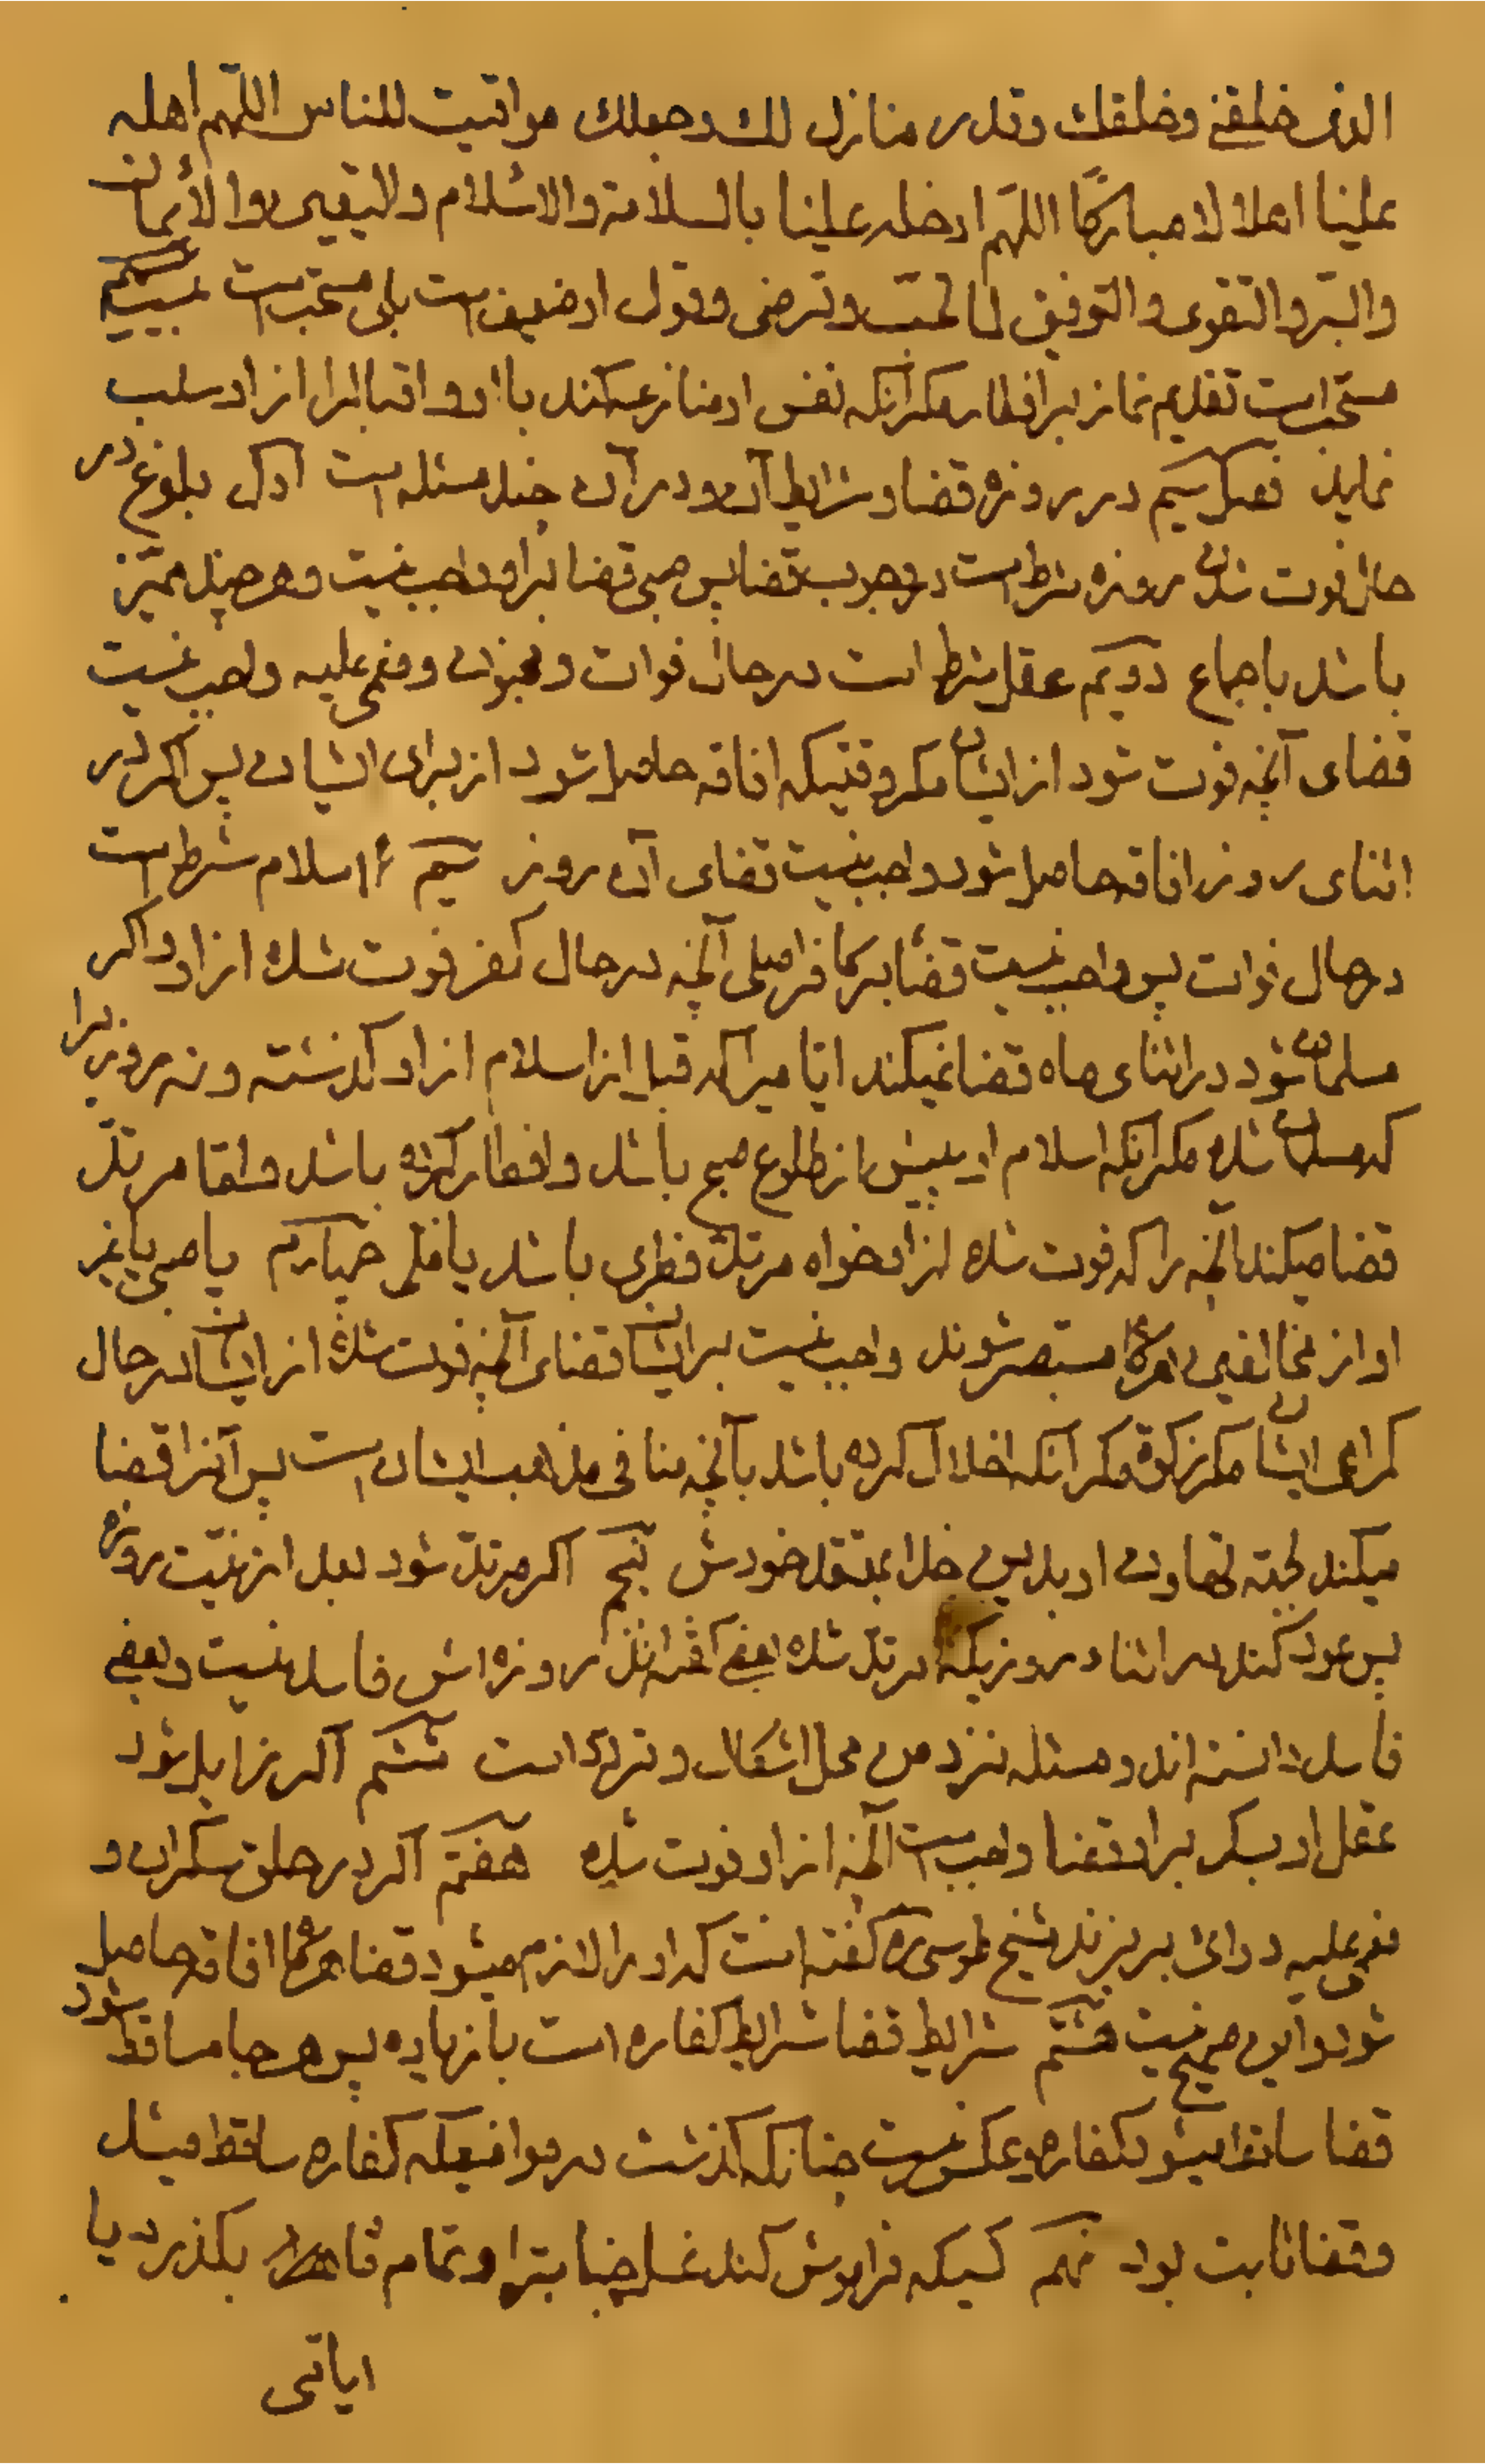 الذی خلقنی وخلقك وقدر منازل لك وجعلك مواقیت للناس اللّهم اهله
علینا اهلالا مبارکًا اللهّم ادخله علینا بالسلامة والاسلام والیقین والأیمان
والبّر والتقوی والتوفیق لما تحبّ وترضی وقول او ضعیف است بلی مستحب است بیستم
مستحّب است تقدیم نماز بر افطار مکر آنکه نفس او منازعه کند با او واقبال را از او سلب
نماید فصل سیم در روزه قضا وشرایط آن ودر آن چند مسئله است اوّل بلوغ در
حال فوت شدن روزه شرط است در وجوب قضا پس صبی قضا بر او واجب نیست وهر چند ممیّز
باشد باجماع دویّم عقل شرط است در حال فوات ومجنون ومغمی علیه واجب نیست
قضای آنچه فوت شود از ایشان مکر وقتیکه افاقه حاصل شود از برای ایشان پس اکر در
اثنای روز افاقه حاصل شود واجب نیست قضای آن روز سیّم اسلام شرط است
در حال فوات پس واجب نیست قضا بر کافر اصلی آنچه در حال کفر فوت شده از او واکر
مسلمان شود در اثنای ماه قضا نمیکند ایّامیرا که قبل از اسلام از او کذشته ونه روزیرا
که مسلمان شده مکر آنکه اسلام او پیش از طلوع صبح باشد وافطار کرده باشد وامّا مرتدّ
قضا میکند آنچه را که فوت شده از او خواه مرتدّ فطری باشد یا ملی چهارم یا صبی یا غیر
او از مخالفین هرکاه مستبصر شوند واجب نیست بر ایشان قضای آنچه فوت شده از ایشان در حال
کمراهی ایشان مکر زکوة مکر آنکه اخلال کرده باشد بآنچه منافی مذهب ایشان است پس آنرا قضا
میکند لجهة تهاون او بدین خدا بمعتقد خودش پنجم اکر مرتدّ شود بعد از نیّت روزه
پس عود کند در اثناء روزیکه مرتدّ شده بعضی کفته اند روزه اش فاسد نیست وبعضی
فاسد دانسته اند ومسئله نزد من محل اشکال وتردّد است ششم اکر زایل شود
عقل او بسکر بر او قضا واجب است آنچه از او فوت شده هفتم اکر در حلق سکران و
مغمی علیه دوائی بریزند شیخ طوسی ره کفته است که او را لازم میشود قضا هرکاه افاقه حاصل
شود واین صحیح نیست هشتم شرایط قضا شرایط کفاره است با زیاده پس هر جا ساقط شود
قضا ساقط میشود کفاره وعکس نیست چنانکه کذشت در مواضعیکه کفاره ساقط میشد
وقضا ثابت بود نهم کسیکه فراموش کند غسل جنابترا وتمام ماه بکذرد یا
ایامی